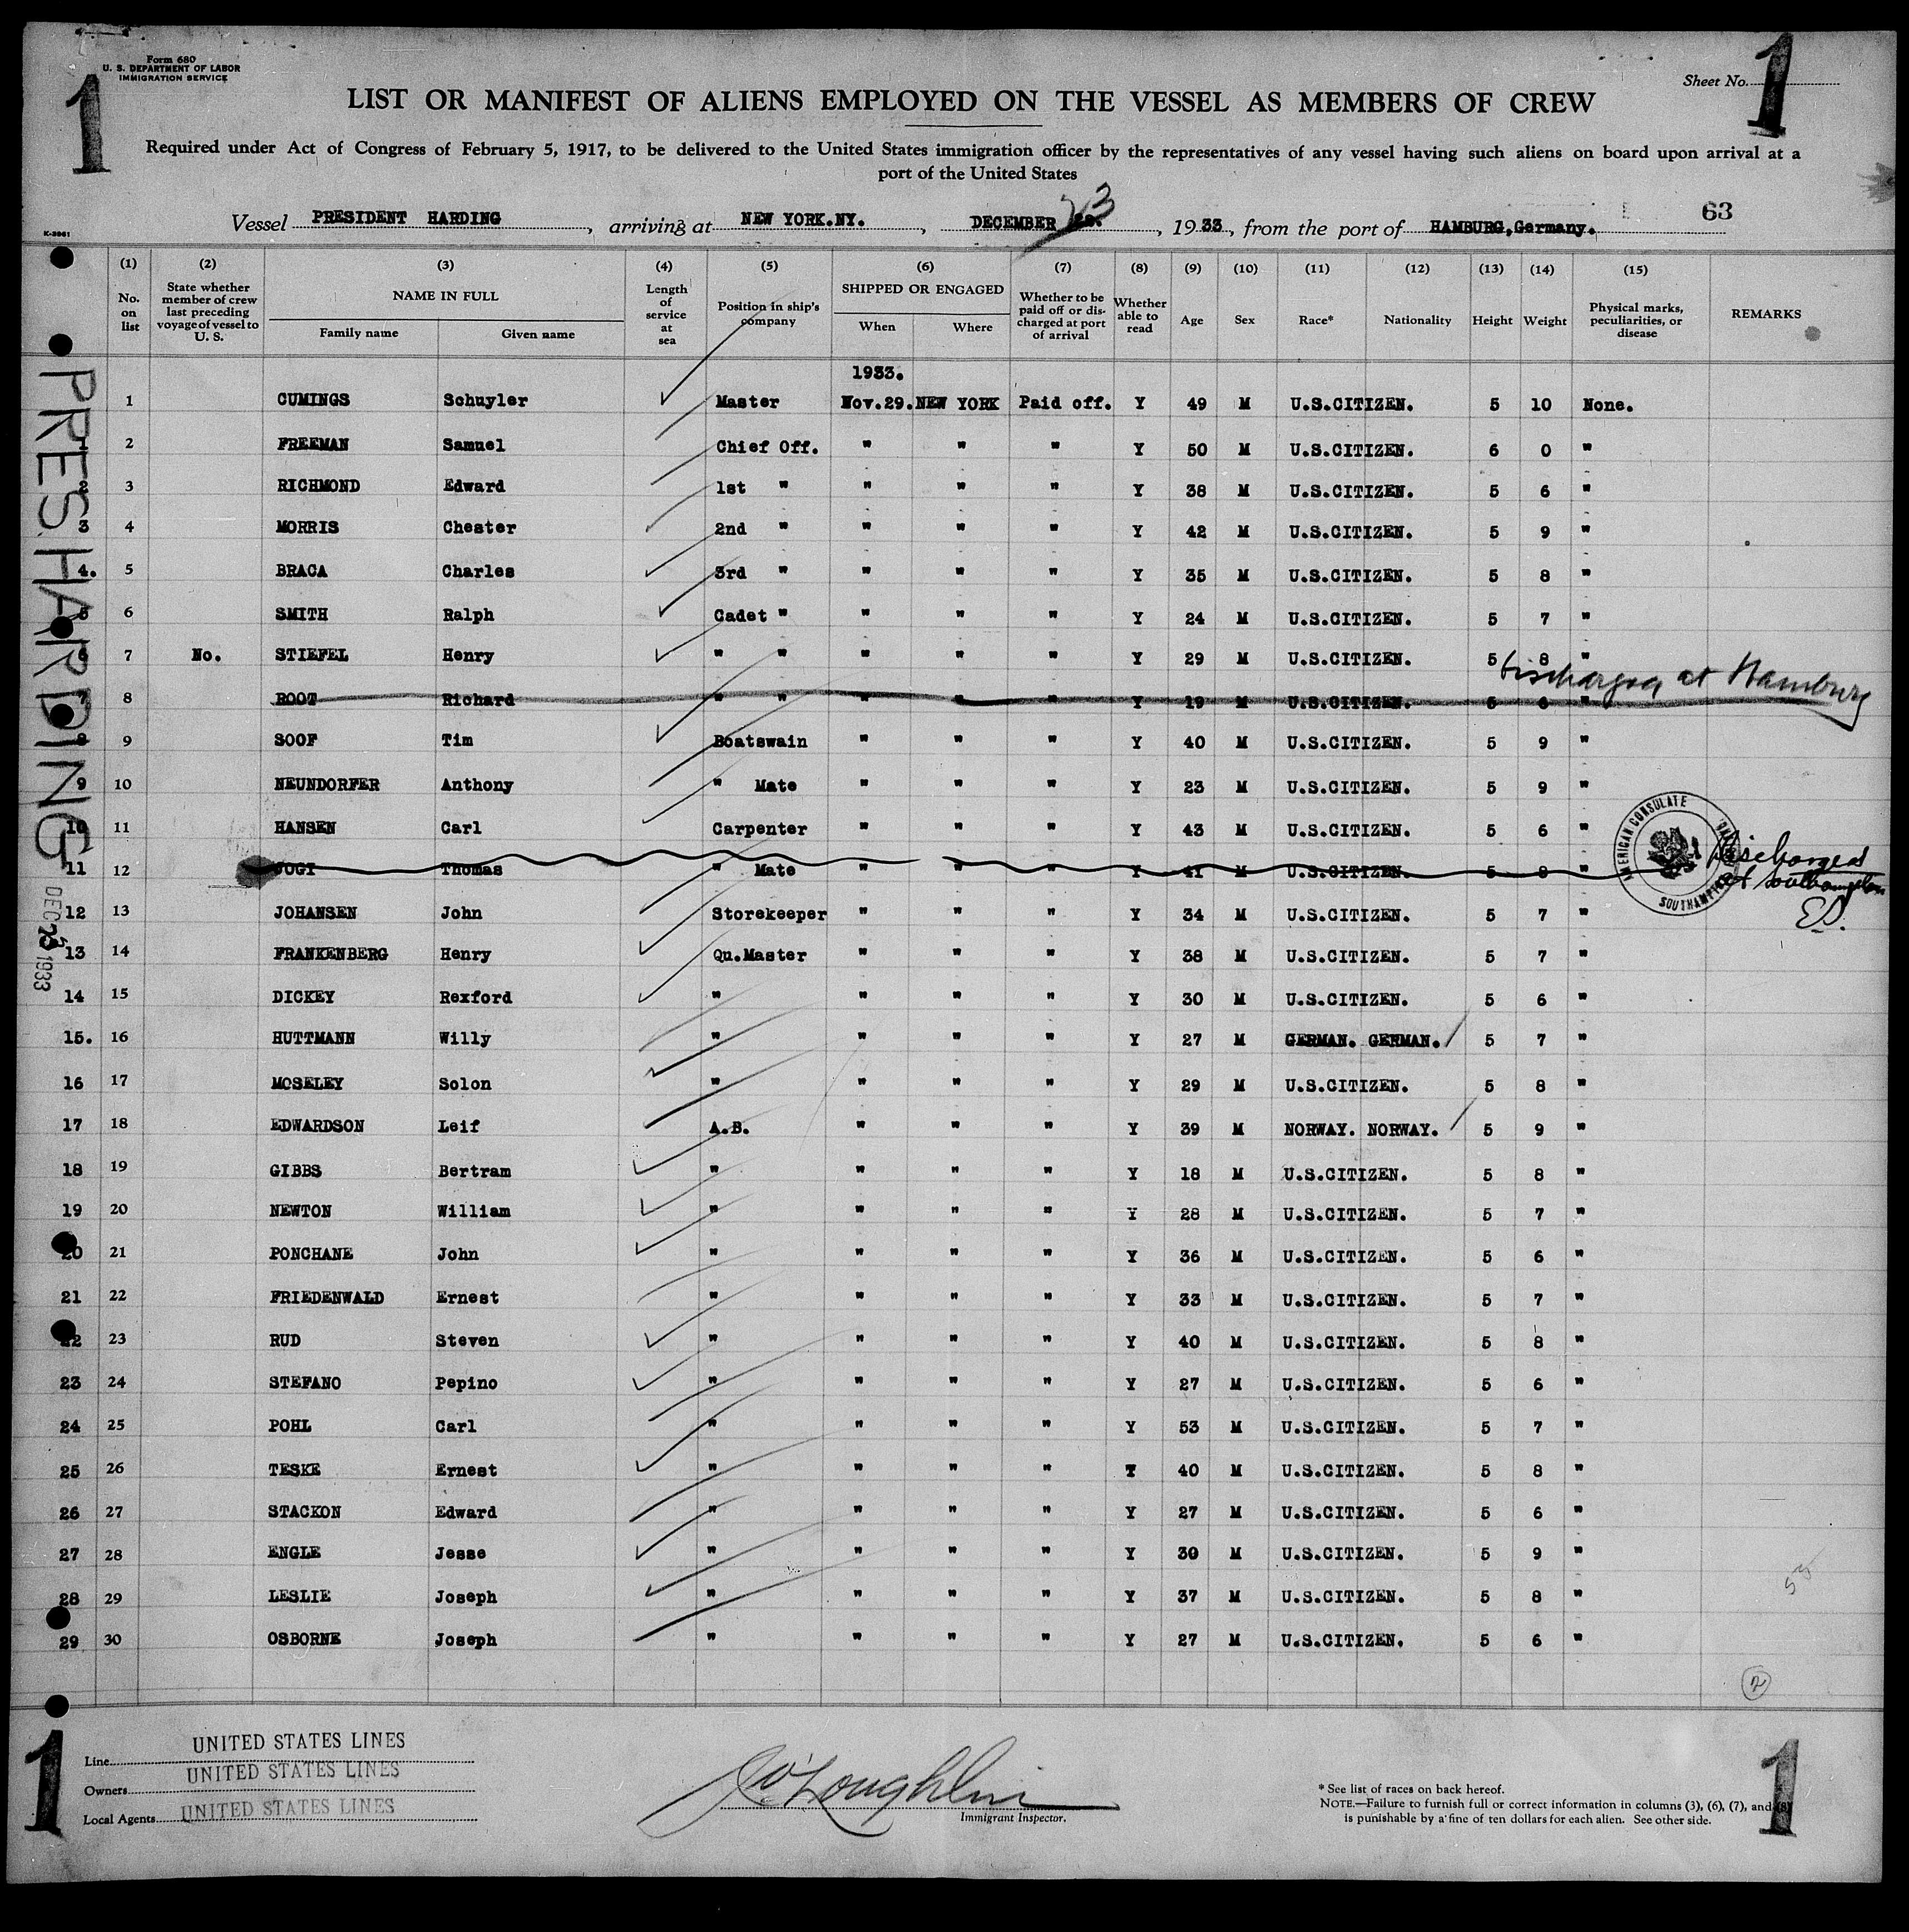 Form 680
U. S. DEPARTMENT OF LABOR
IMMIGRATION SERVICE
1
Sheet No. 1
LIST OR MANIFEST OF ALIENS EMPLOYED ON THE VESSEL AS MEMBERS OF CREW
Required under Act of Congress of February 5, 1917, to be delivered to the United States immigration officer by the representatives of any vessel having such aliens on board upon arrival at a
port of the United States
63
Vessel PRESIDENT HARDING, arriving at NEW YORK.NY., DECEMBER 23, 1933, from the port of HAMBURG,Germany.
K-3961
(1) (2) (3) (4) (5) (6) (7) (8) (9) (10) (11) (12) (13) (14) (15)
No. on list
State whether member of crew last preceding voyage of vessel to U. S.
NAME IN FULL
Family name Given name
Length of service at sea
Position in ship's company
SHIPPED OR ENGAGED
When Where
Whether to be paid off or discharged at port of arrival
Whether able to read
Age Sex Race* Nationality Height Weight
Physical marks, peculiarities, or disease
REMARKS
PRES. HARDING
DEC 23 1933
1933.
1 CUMINGS Schuyler Master Nov.29. NEW YORK Paid off. Y 49 M U.S.CITIZEN. 5 10 None.
1 2 FREEMAN Samuel Chief Off. " " " Y 50 M U.S.CITIZEN. 6 0 "
2 3 RICHMOND Edward 1st " " " " Y 38 M U.S.CITIZEN. 5 6 "
3 4 MORRIS Chester 2nd " " " " Y 42 M U.S.CITIZEN. 5 9 "
4. 5 BRACA Charles 3rd " " " " Y 35 M U.S.CITIZEN. 5 8 "
5 6 SMITH Ralph Cadet " " " " Y 24 M U.S.CITIZEN. 5 7 "
6 7 No. STIEFEL Henry " " " " " Y 29 M U.S.CITIZEN. 5 8 "
Discharged at Hamburg
7 8 ROOT Richard " " " " " Y 19 M U.S.CITIZEN. 5 6 "
8 9 SOOF Tim Boatswain " " " Y 40 M U.S.CITIZEN. 5 9 "
9 10 NEUNDORFER Anthony " Mate " " " Y 23 M U.S.CITIZEN. 5 9 "
10 11 HANSEN Carl Carpenter " " " Y 43 M U.S.CITIZEN. 5 6 "
11 12 JOGI Thomas " Mate " " " Y 41 M U.S.CITIZEN. 5 8 "
AMERICAN CONSULATE SOUTHAMPTON
Discharged
at Southampton
12 13 JOHANSEN John Storekeeper " " " Y 34 M U.S.CITIZEN. 5 7 "
13 14 FRANKENBERG Henry Qu.Master " " " Y 38 M U.S.CITIZEN. 5 7 "
14 15 DICKEY Rexford " " " " Y 30 M U.S.CITIZEN. 5 6 "
15. 16 HUTTMANN Willy " " " " Y 27 M GERMAN. GERMAN. 5 7 "
16 17 MOSELEY Solon " " " " Y 29 M U.S.CITIZEN. 5 8 "
17 18 EDWARDSON Leif A.B. " " " Y 39 M NORWAY. NORWAY. 5 9 "
18 19 GIBBS Bertram " " " " Y 18 M U.S.CITIZEN. 5 8 "
19 20 NEWTON William " " " " Y 28 M U.S.CITIZEN. 5 7 "
20 21 PONCHANE John " " " " Y 36 M U.S.CITIZEN. 5 6 "
21 22 FRIEDENWALD Ernest " " " " Y 33 M U.S.CITIZEN. 5 7 "
22 23 RUD Steven " " " " Y 40 M U.S.CITIZEN. 5 8 "
23 24 STEFANO Pepino " " " " Y 27 M U.S.CITIZEN. 5 6 "
24 25 POHL Carl " " " " Y 53 M U.S.CITIZEN. 5 7 "
25 26 TESKE Ernest " " " " Y 40 M U.S.CITIZEN. 5 8 "
26 27 STACKON Edward " " " " Y 27 M U.S.CITIZEN. 5 6 "
27 28 ENGLE Jesse " " " " Y 30 M U.S.CITIZEN. 5 9 "
28 29 LESLIE Joseph " " " " Y 37 M U.S.CITIZEN. 5 8 "
29 30 OSBORNE Joseph " " " " Y 27 M U.S.CITIZEN. 5 6 "
2
Line UNITED STATES LINES
Owners UNITED STATES LINES
Local Agents UNITED STATES LINES
O'Loughlin
Immigrant Inspector.
* See list of races on back hereof.
NOTE.—Failure to furnish full or correct information in columns (3), (6), (7), and (8)
is punishable by a fine of ten dollars for each alien. See other side.
1
1